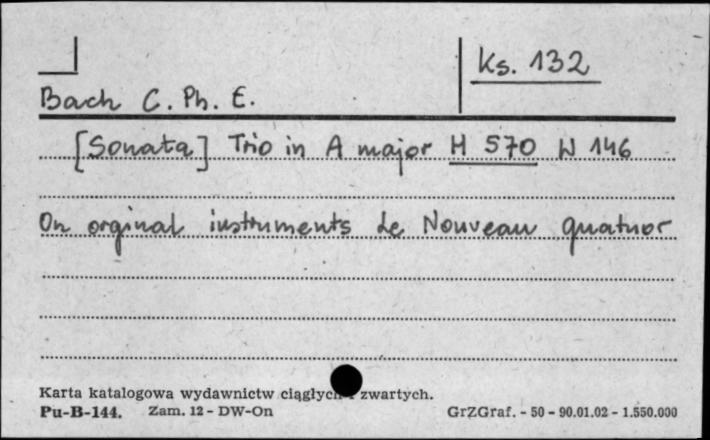 Ks. 132
Bach C. Ph. E.
[Sonata] Trio in A major H 570 W 146
On orginal instruments Le Nouveau quatuor
Karta katalogowa wydawnictw ciągłych i zwartych.
Pu-B-144. Zam. 12 - DW-On GrZGraf. - 50 - 90.01.02 - 1.550.000